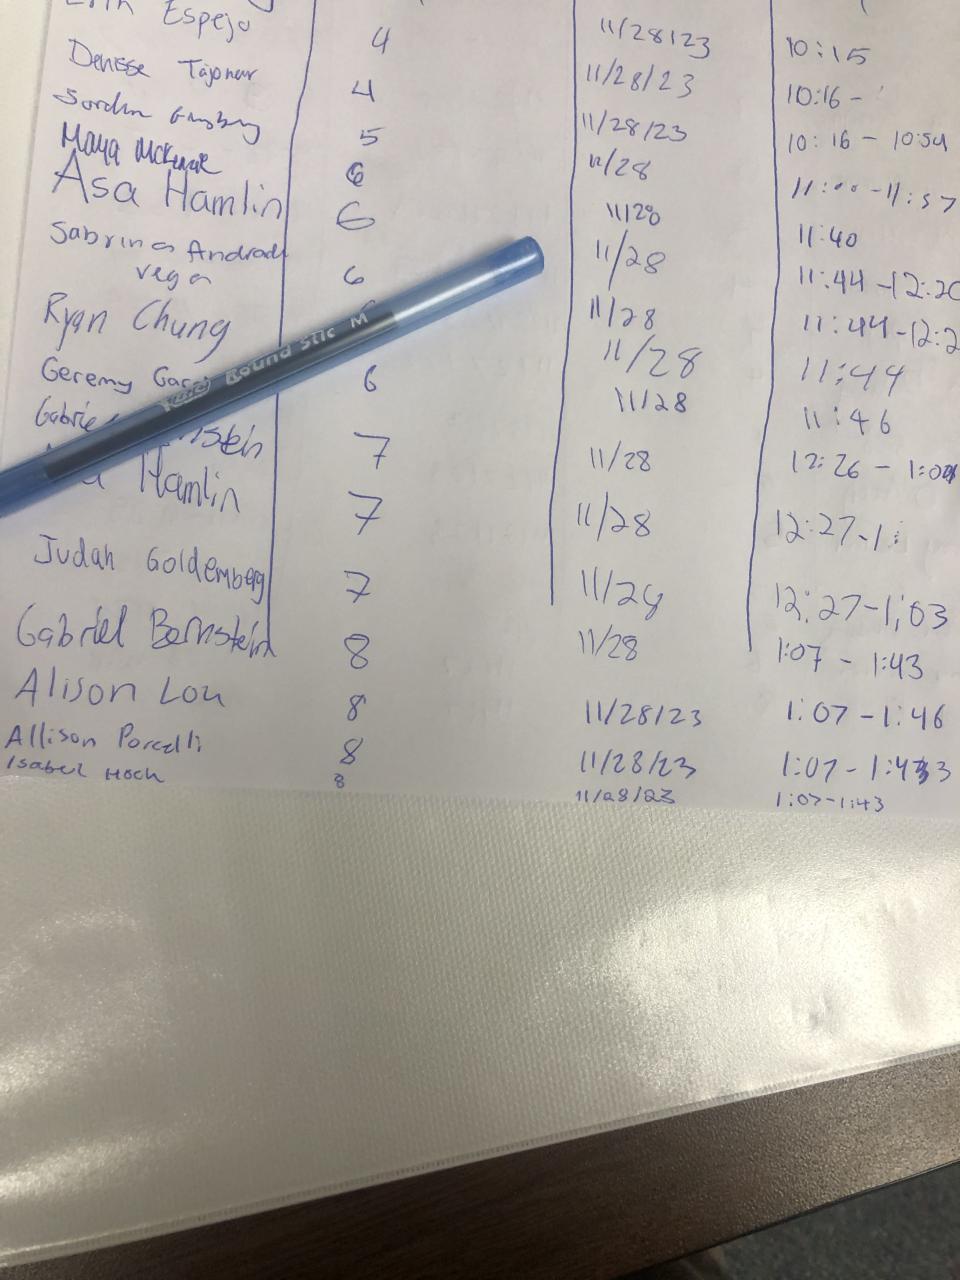 Espejo 4 11/28/23 10:15
Denisse Tajonar 4 11/28/23 10:16 -
5 11/28/23 10:16 - 10:54
Maya McKenzie 6 11/28 11:00 - 11:57
Asa Hamlin 6 11/28 11:40
Sabrina Andrade 6 11/28 11:44 - 12:20
Vega
Ryan Chung 11/28 11:44 - 12:2
Geremy 6 11/28 11:44
11/28 11:46
7 11/28 12:26 -
Hamlin 7 11/28 12:27 - 1:
Judah Goldemberg 7 11/28 12:27 - 1:03
Gabriel Bernstein 8 11/28 1:07 - 1:43
Alison Lou 8 11/28/23 1:07 - 1:46
Allison Porcelli 8 11/28/23 1:07 - 1:43
Isabel Hoch 8 11/28/23 1:07 - 1:43
Round Stic M